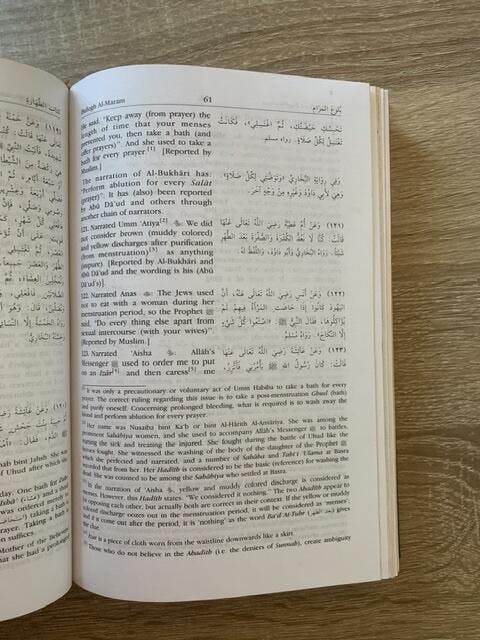 Bulugh Al-Maram
61
بُلُوغُ المَرَام
He said, "Keep away (from prayer) the
length of time that your menses
prevented you, then take a bath (and
offer prayers)". And she used to take a
bath for every prayer.[1] [Reported by
Muslim.]
The narration of Al-Bukhâri has:
"Perform ablution for every Salât
(prayer)". It has (also) been reported
by Abû Dâ'ud and others through
another chain of narrators.
121. Narrated Umm 'Atiya[2] ﷺ: We did
not consider brown (muddy colored)
and yellow discharges after purification
(from menstruation)[3] as anything
(impure). [Reported by Al-Bukhâri and
Abû Dâ'ud and the wording is his (Abû
Dâ'ud's)]
122. Narrated Anas: The Jews used
not to eat with a woman during her
menstruation period, so the Prophet ﷺ
said, "Do every thing else apart from
sexual intercourse (with your wives)".
[Reported by Muslim.]
123. Narrated 'Aisha: Allâh's
Messenger ﷺ used to order me to put
on an Izâr[4] and then caress[5] me
تَحْبِسُكِ حَيْضَتُكِ، ثُمَّ اغْتَسِلِي»، فَكَانَتْ
تَغْتَسِلُ لِكُلِّ صَلَاةٍ. رواه مسلم.
وَفِي رِوَايَةٍ لِلْبُخَارِيِّ «وَتَوَضَّئِي لِكُلِّ صَلَاةٍ»،
وَهِيَ لأَبِي دَاوُدَ وَغَيْرِهِ مِنْ وَجْهٍ آخَرَ.
(١٢١) وَعَنْ أُمِّ عَطِيَّةَ رَضِيَ اللَّهُ تَعَالَى عَنْهَا
قَالَتْ: كُنَّا لَا نَعُدُّ الكُدْرَةَ وَالصُّفْرَةَ بَعْدَ الطُّهْرِ
شَيْئاً. رَوَاهُ البُخَارِيُّ وَأَبُو دَاوُدَ، وَاللَّفْظُ لَهُ.
(١٢٢) وَعَنْ أَنَسٍ رَضِيَ اللَّهُ تَعَالَى عَنْهُ، أَنَّ
اليَهُودَ كَانُوا إِذَا حَاضَتِ المَرْأَةُ فِيهِمْ لَمْ
يُؤَاكِلُوهَا، فَقَالَ النَّبِيُّ ﷺ: «اصْنَعُوا كُلَّ شَيْءٍ
إِلَّا النِّكَاحَ». رَوَاهُ مُسْلِمٌ.
(١٢٣) وَعَنْ عَائِشَةَ رَضِيَ اللَّهُ تَعَالَى عَنْهَا
قَالَتْ: كَانَ رَسُولُ اللَّهِ ﷺ يَأْمُرُنِي فَأَتَّزِرُ،
It was only a precautionary or voluntary act of Umm Habiba to take a bath for every
prayer. The correct ruling regarding this issue is to take a post-menstruation Ghusl (bath)
and purify oneself. Concerning prolonged bleeding, what is required is to wash away the
blood and perform ablution for every prayer.
Her name was Nusaiba bint Ka'b or bint Al-Hârith Al-Ansâriya. She was among the
prominent Sahâbiya women, and she used to accompany Allâh's Messenger ﷺ to battles,
nursing the sick and treating the injured. She fought during the battle of Uhud like the
heroes fought. She witnessed the washing of the body of the daughter of the Prophet ﷺ
when she perfected and narrated, and a number of Sahâba and Tabi'i 'Ulama at Basra
recorded that from her. Her Hadith is considered to be the basic (reference) for washing the
dead. She was counted to be among the Sahâbiya who settled at Basra.
In the narration of Aisha, yellow and muddy colored discharge is considered as
menses. However this Hadith states "We considered it nothing." The two Ahadith appear to
be opposing each other, but actually both are correct in their context. If the yellow or muddy
colored discharge comes out in the menstruation period, it will be considered as 'menses';
and if it come out after the period, it is 'nothing' as the word Ba'd At-Tuhr (بعد الطهر) gives
the clue.
Izar is a piece of cloth worn from the waistline downwards like a skirt.
Those who do not believe in the Ahadith (i.e. the deniers of Sunnah), create ambiguity
كتاب الطهارة
(١١٩) وَعَنْ حَمْنَةَ
bint Jahsh: She was
of Uhud after which she
day. One bath for Zuhr
was ordered merely to
prayer. Taking a bath
on suffices.
Mother of the Believers
that she had a prolonged